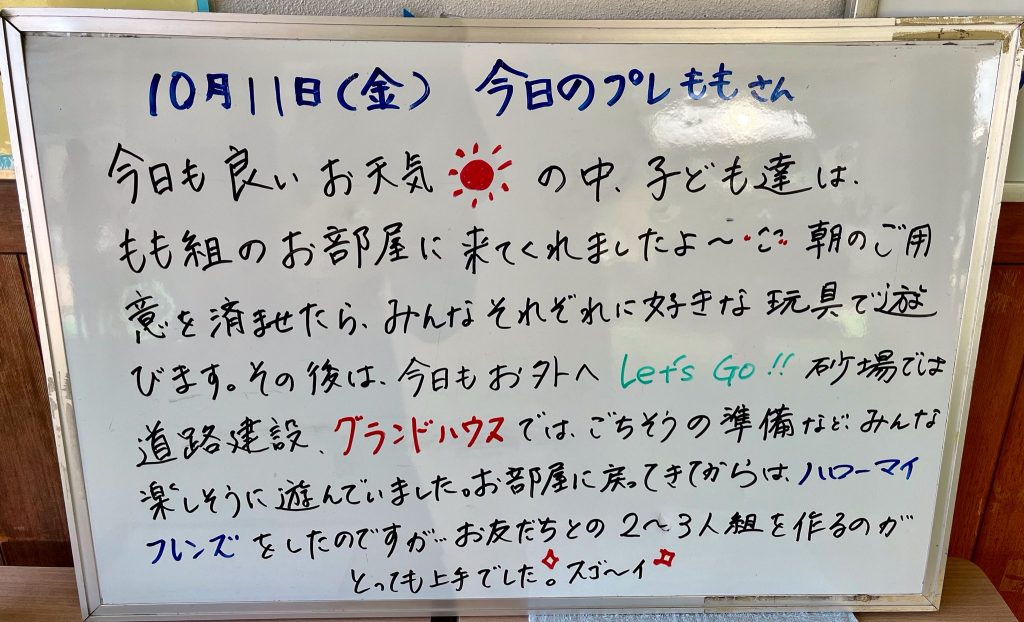 10月11日(金) 今日のプレももさん
今日も良いお天気の中、子ども達は、
もも組のお部屋に来てくれましたよ〜 朝のご用
意を済ませたら、みんなそれぞれに好きな玩具で遊
びます。その後は、今日もお外へ Let's Go!! 砂場では
道路建設、グランドハウスでは、ごちそうの準備など、みんな
楽しそうに遊んでいました。お部屋に戻ってきてからは、ハローマイ
フレンズをしたのですが…お友だちとの2〜3人組を作るのが
とっても上手でした。スゴ〜イ